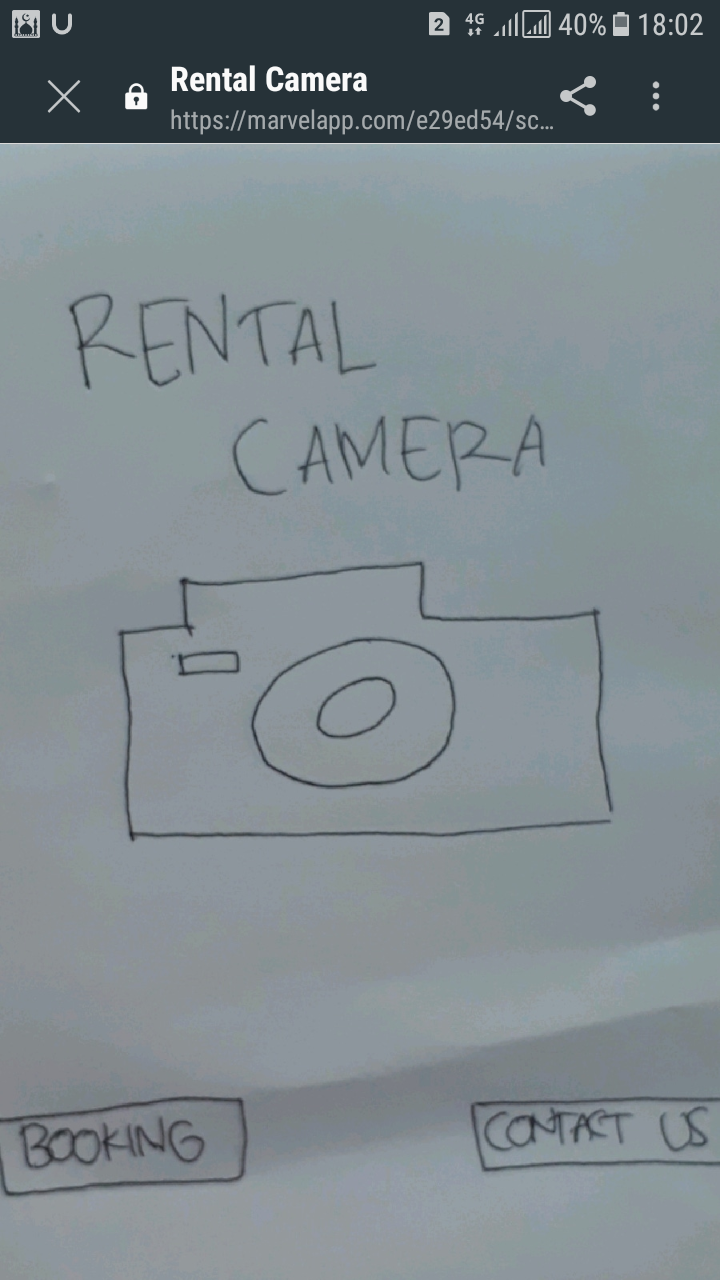 2 4G 40% 18:02
Rental Camera
https://marvelapp.com/e29ed54/sc...
RENTAL
CAMERA
BOOKING
CONTACT US